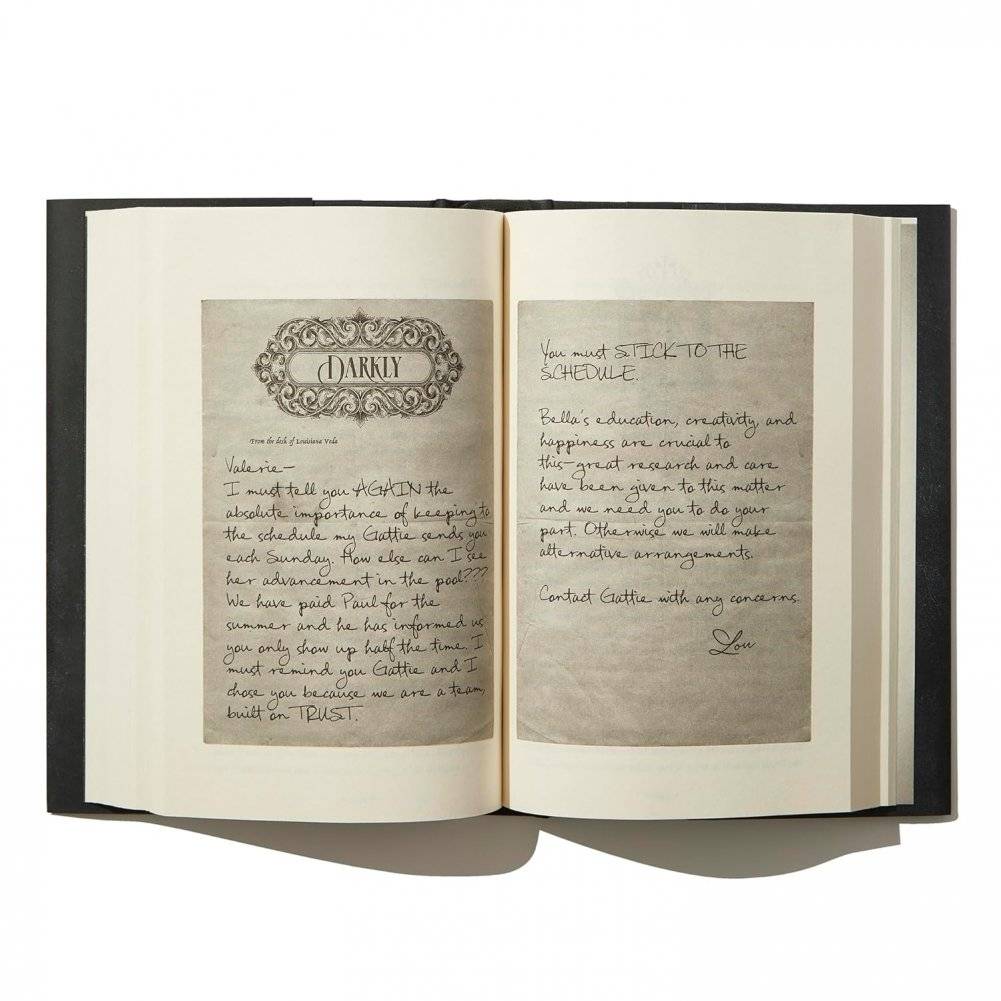 DARKLY
From the desk of Louisiana Veda
Valerie—
I must tell you AGAIN the
absolute importance of keeping to
the schedule my Gattie sends you
each Sunday. How else can I see
her advancement in the pool???
We have paid Paul for the
summer and he has informed us
you only show up half the time. I
must remind you Gattie and I
chose you because we are a team,
built on TRUST.
You must STICK TO THE
SCHEDULE.
Bella's education, creativity, and
happiness are crucial to
this—great research and care
have been given to this matter
and we need you to do your
part. Otherwise we will make
alternative arrangements.
Contact Gattie with any concerns.
Lou